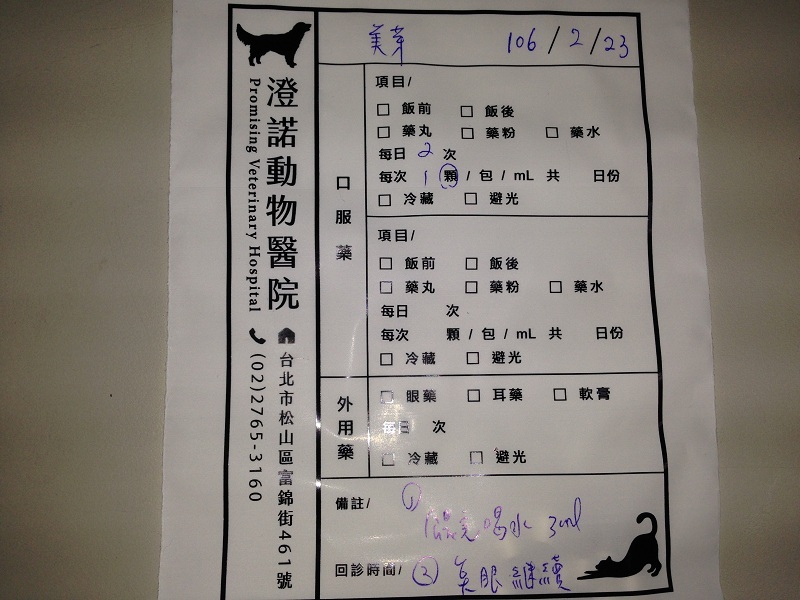 澄諾動物醫院
Promising Veterinary Hospital
台北市松山區富錦街461號
(02)2765-3160
美芽 106/2/23
口服藥
項目/
□ 飯前 □ 飯後
□ 藥丸 □ 藥粉 □ 藥水
每日 2 次
每次 1 顆 / 包 / mL 共 日份
□ 冷藏 □ 避光
項目/
□ 飯前 □ 飯後
□ 藥丸 □ 藥粉 □ 藥水
每日 次
每次 顆 / 包 / mL 共 日份
□ 冷藏 □ 避光
外用藥
□ 眼藥 □ 耳藥 □ 軟膏
每日 次
□ 冷藏 □ 避光
備註/ ① 喝水 3ml
回診時間/ ② 眼繼續